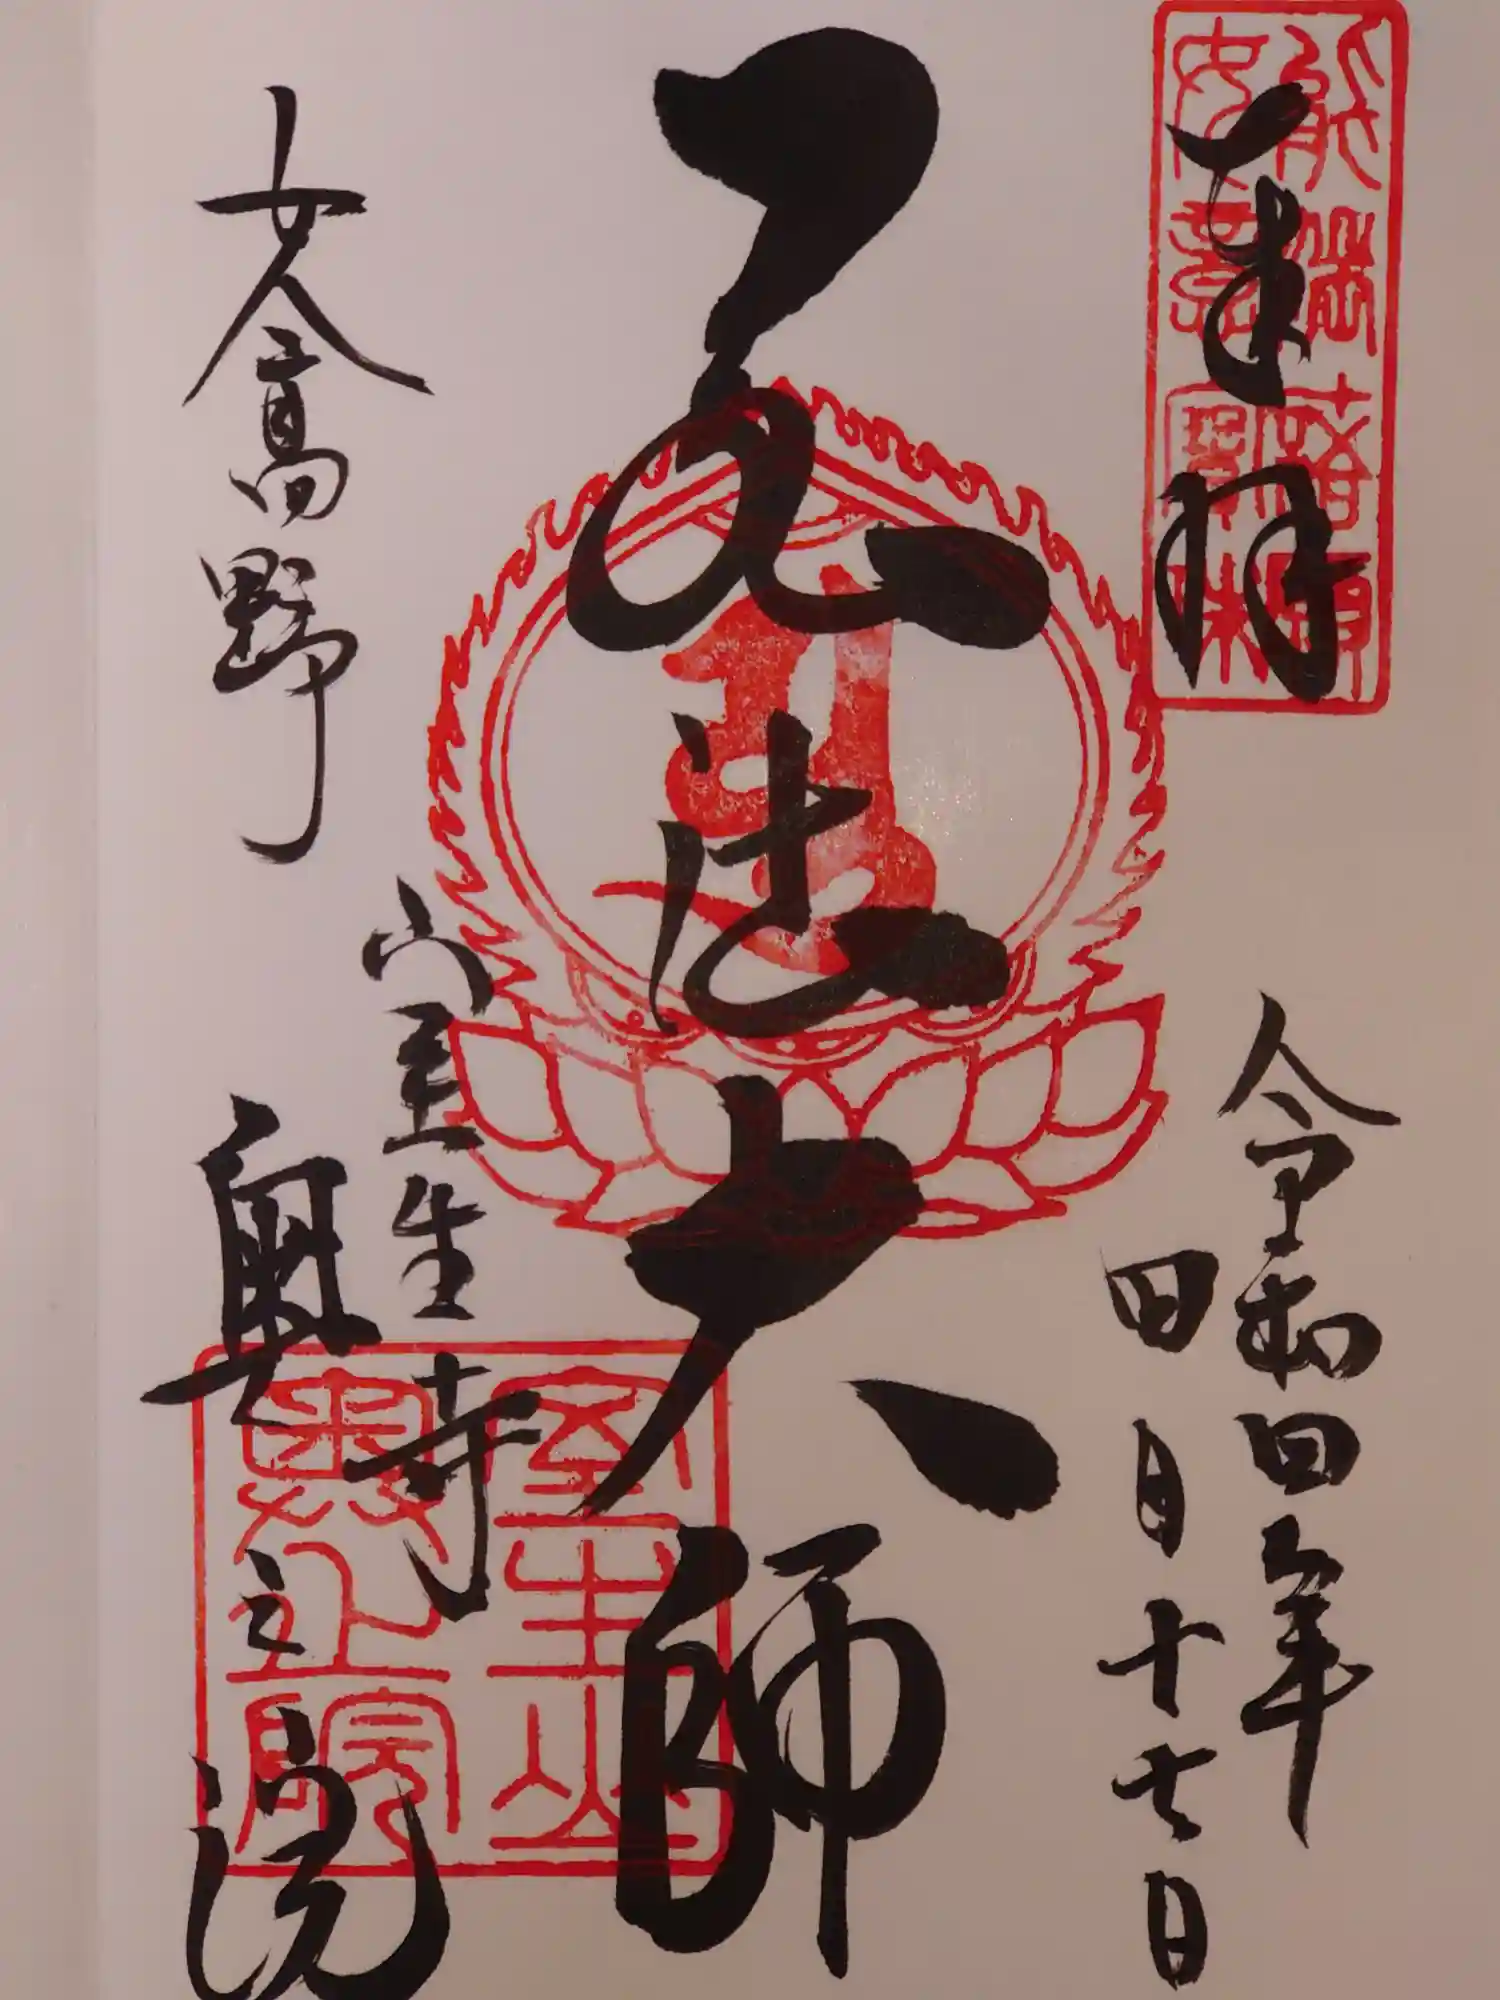 奉拝
令和四年
四月十七日
弘法大師
女人高野
室生寺
奥之院
室生山
奥止院